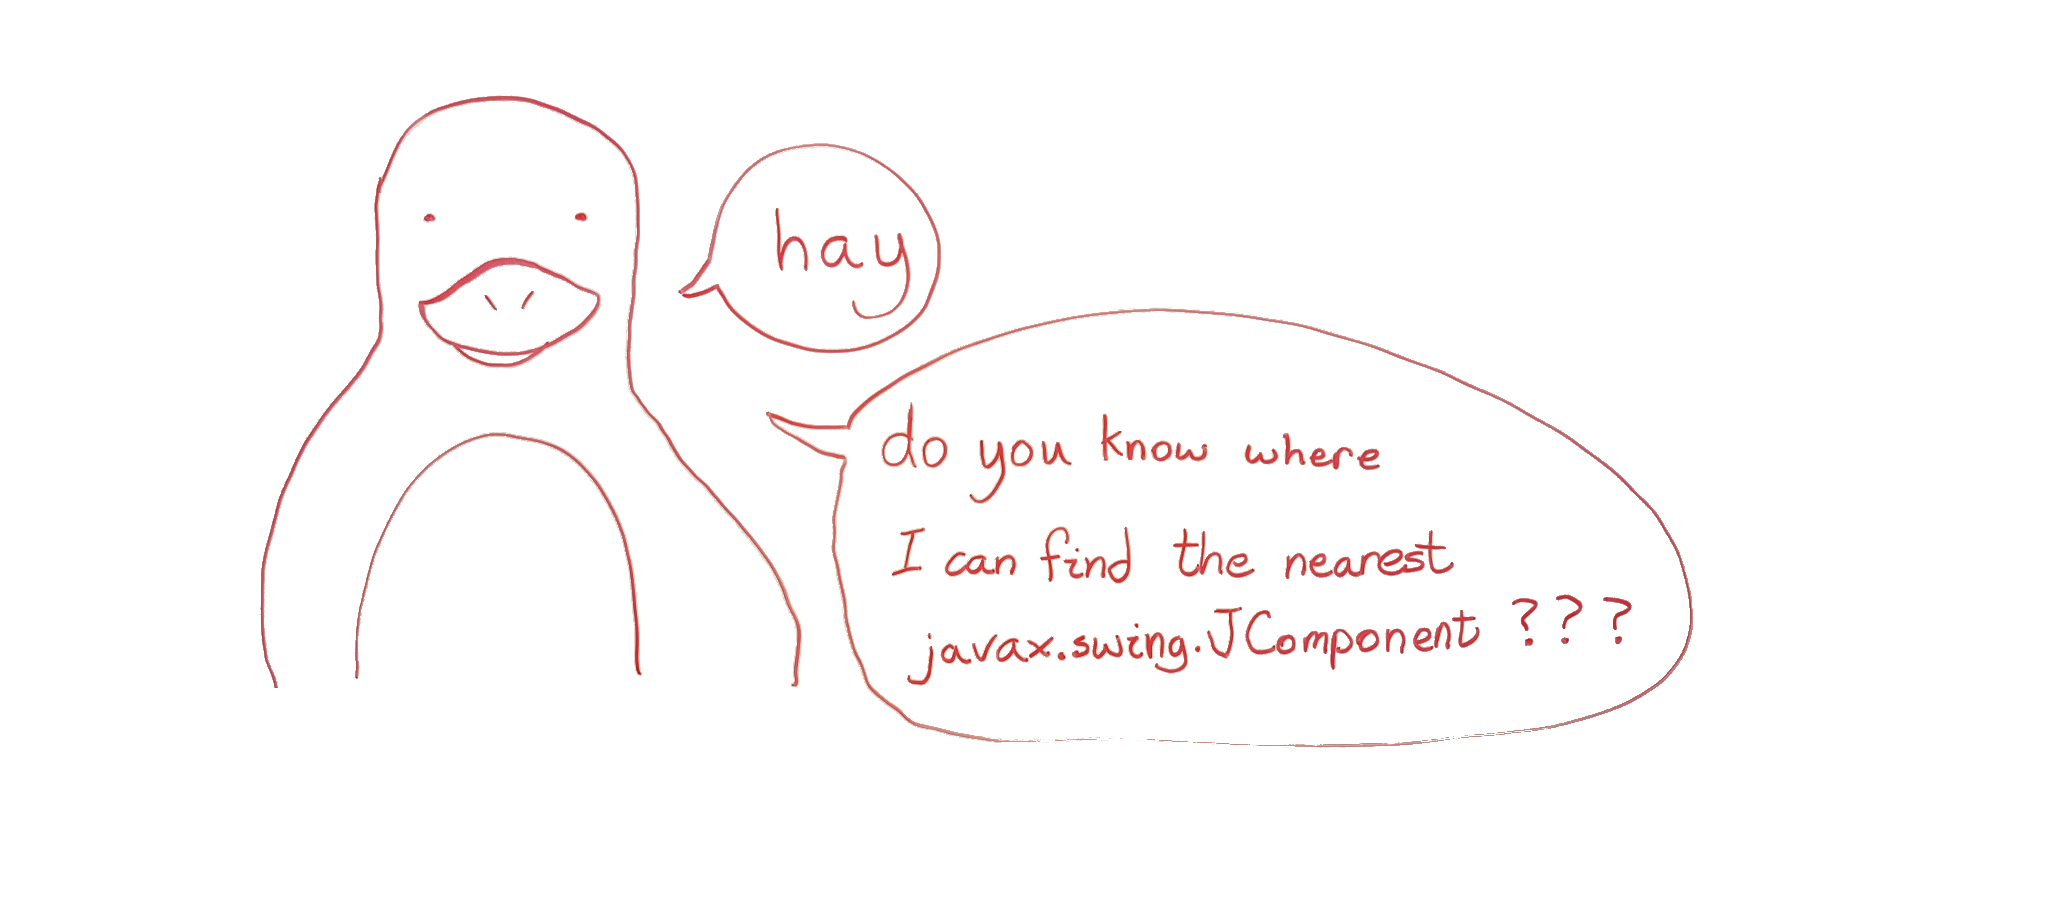 hay
do you know where
I can find the nearest
javax.swing.JComponent ???